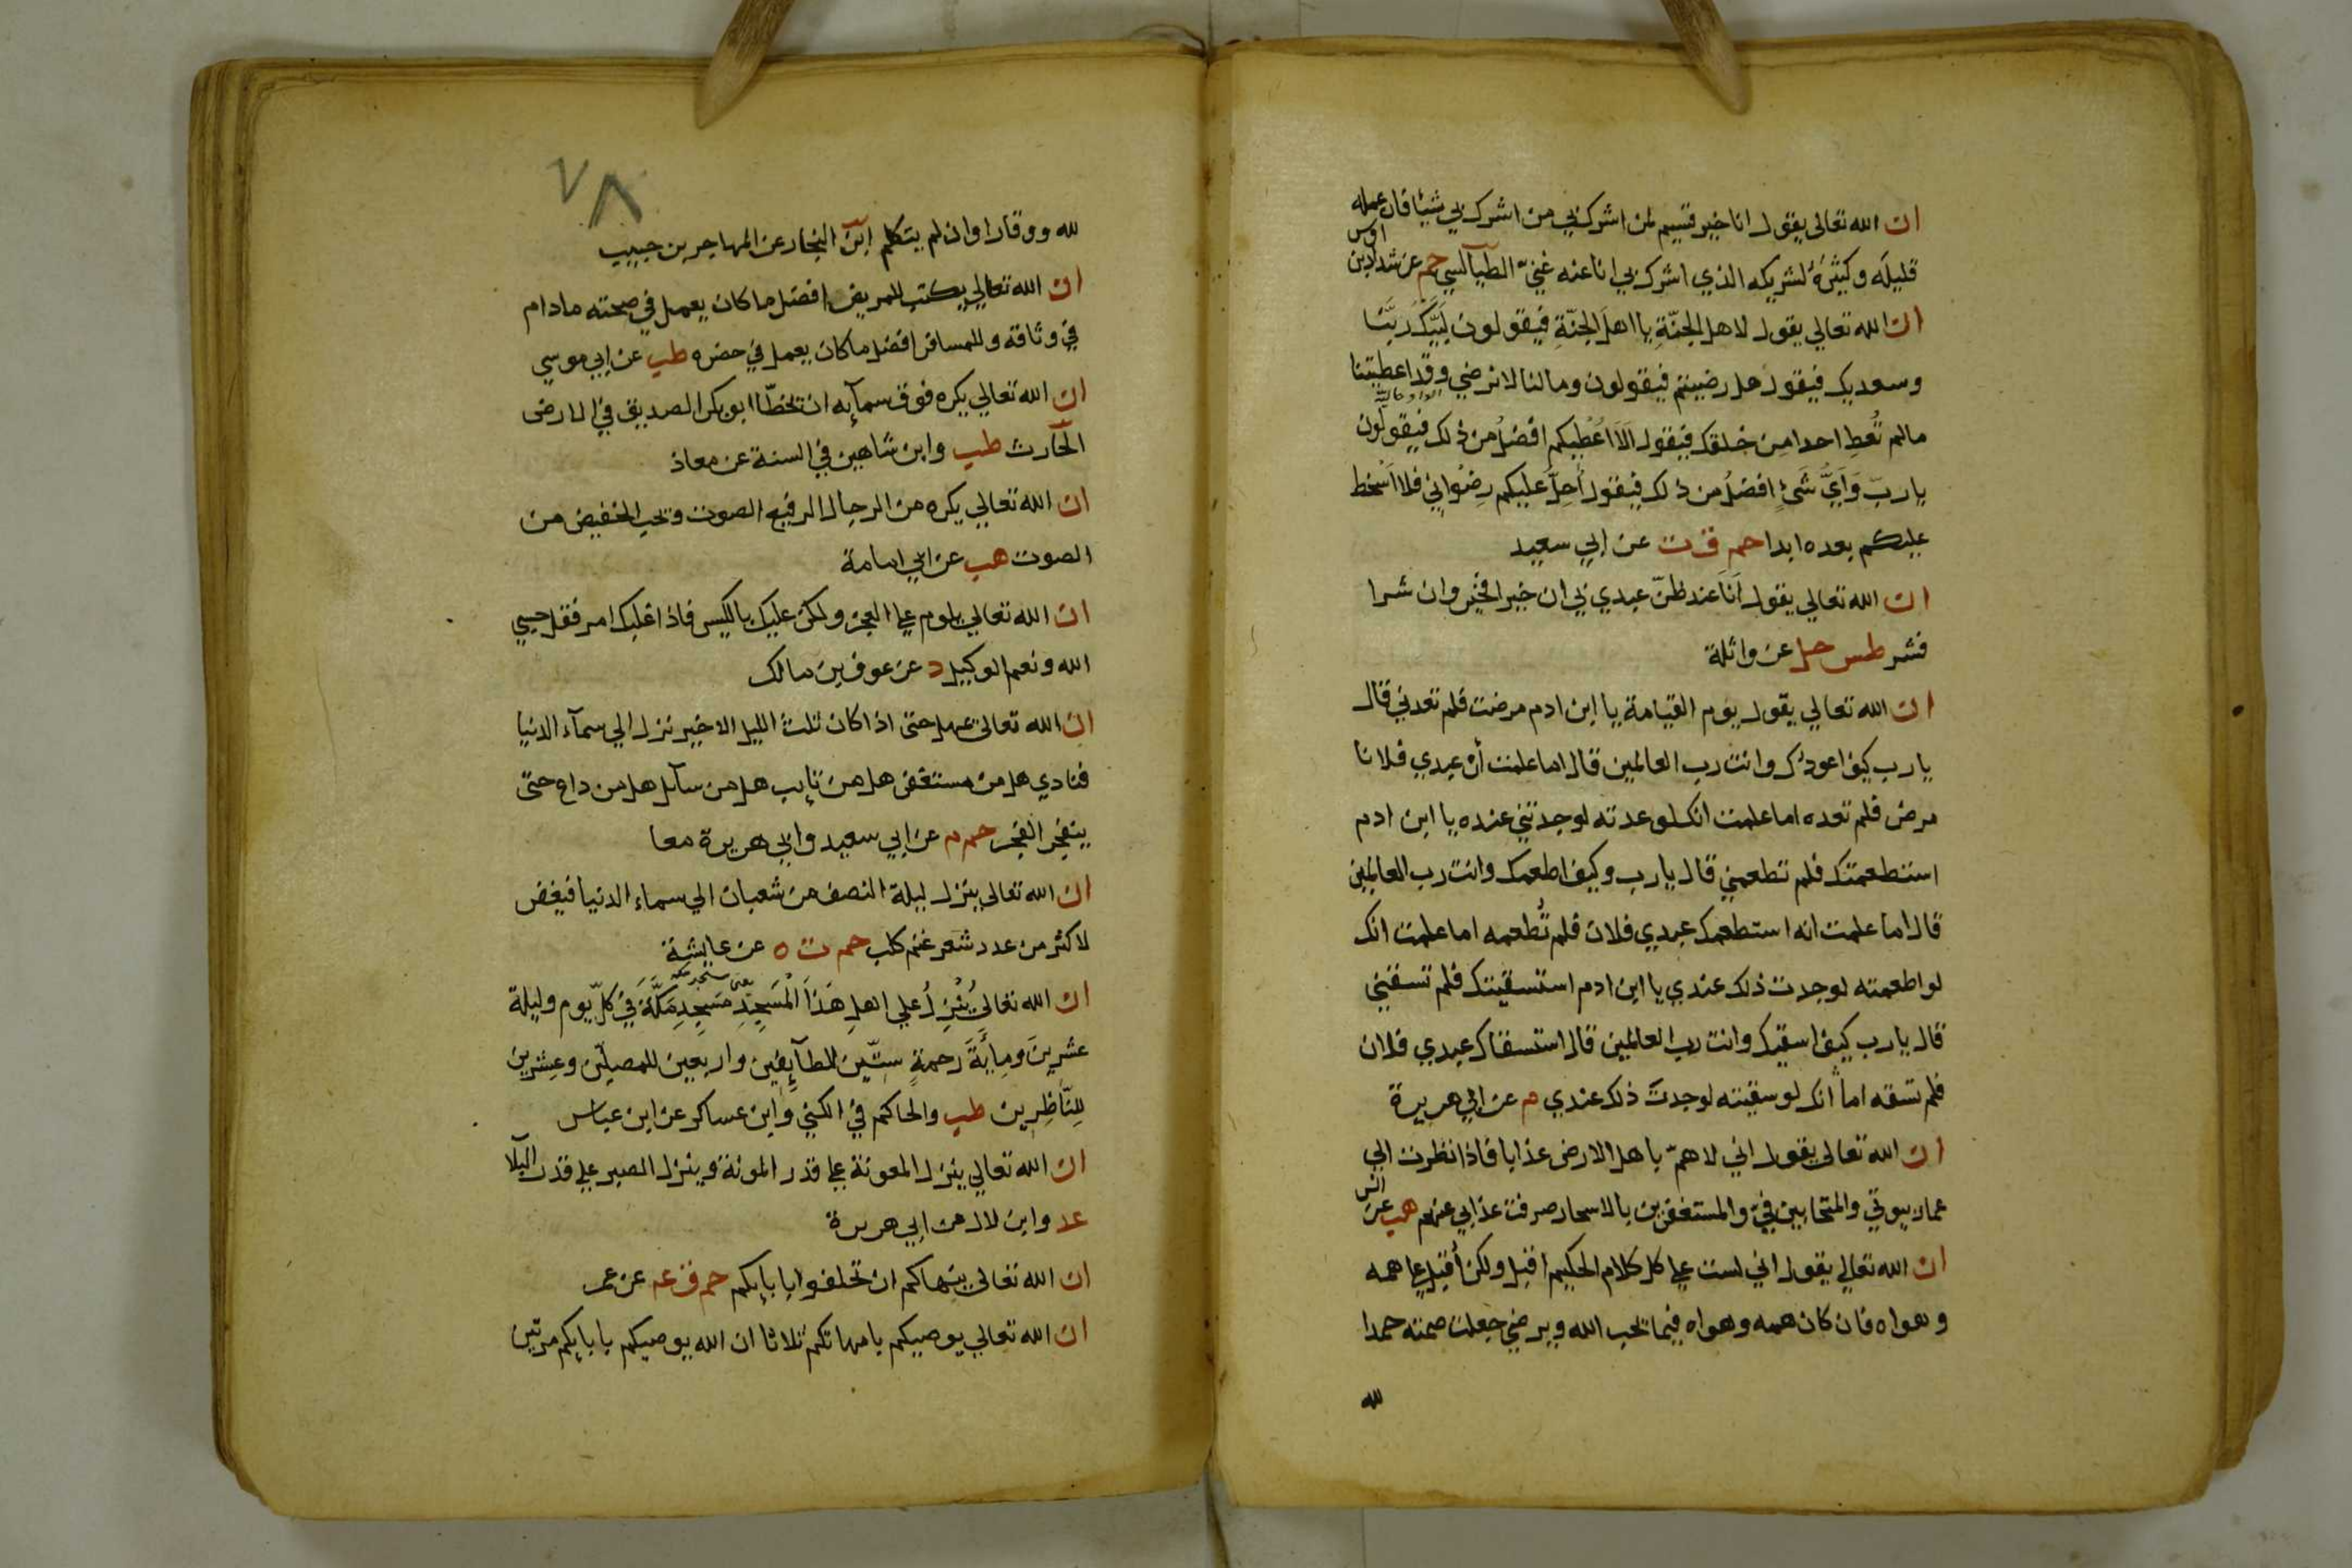 ان الله تعالى يقول انا خير قسيم لمن اشرك بي من اشرك بي شيئا فان عمله
قليله وكثيره لشريكه الذي اشرك بي انا عنه غني الطيالسي حم عن شداد بن اوس
ان الله تعالي يقول لاهل الجنّةِ يا اهلَ الجنّةِ فيقولون لَبَّيْكَ رَبَّنَا
وسعديك فيقول هل رضيتم فيقولون وما لنا لا نرضي وقد اعطيتنا
مالم تُعطِ احدا مِن خلقك فيقول اَلَا اُعْطِيكم افضلُ من ذلك فيقولون
يا ربّ وَاَيُّ شَيْءٍ افضلُ من ذلك فيقول اُحِلُّ عليكم رِضْوانِي فلا اَسْخط
عليكم بعده ابدا حم ق ت عن ابي سعيد
ان الله تعالي يقول اَنَا عند ظنّ عبدي بي ان خيرا فخير وان شرا
فشر طس حل عن واثلة
ان الله تعالي يقول يوم القيامة يا ابن ادم مرضت فلم تعدني قال
يا رب كيف اعودُك وانت رب العالمين قال اما علمت أن عبدي فلانا
مرض فلم تعده اما علمت انك لو عدته لوجدتني عنده يا ابن ادم
استطعمتك فلم تطعمني قال يا رب وكيف اطعمك وانت رب العالمين
قال اما علمت انه استطعمك عبدي فلان فلم تُطعمه اما علمت انك
لو اطعمته لوجدت ذلك عندي يا ابن ادم استسقيتك فلم تسقني
قال يا رب كيف اسقيك وانت رب العالمين قال استسقاك عبدي فلان
فلم تسقه اما انك لو سقيته لوجدت ذلك عندي م عن ابي هريرة
ان الله تعالى يقول اني لاهمّ باهل الارض عذابا فاذا نظرت الي
عمار بيوتي والمتحابين فيّ والمستغفرين بالاسحار صرفت عذابي عنهم هب عن انس
ان الله تعالي يقول اني لست علي كل كلام الحكيم اقبل ولكن اُقبل علي همه
وهواه فان كان همه وهواه فيما يحب الله ويرضي جعلت صمته حمدا
لله
٧٨
لله ووقارا وان لم يتكلم ابن النجار عن المهاجر بن حبيب
ان الله تعالي يكتب للمريض افضل ما كان يعمل في صحته مادام
في وثاقه وللمسافر افضل ما كان يعمل في حضره طب عن ابي موسي
ان الله تعالي يكره فوق سمآيه ان تخطّا ابو بكر الصديق في الارض
الحارث طب وابن شاهين في السنة عن معاذ
ان الله تعالي يكره من الرجال الرفيع الصوت ويحب الخفيض من
الصوت هب عن ابي امامة
ان الله تعالي يلوم علي العجز ولكن عليك بالكيس فاذا غلبك امر فقل حسبي
الله ونعم الوكيل د عن عوف بن مالك
ان الله تعالى يمهل حتى اذا كان ثلث الليل الاخير نزل الي سمآء الدنيا
فنادي هل من مستغفر هل من تايب هل من سآيل هل من داع حتى
ينفجر الفجر حم م عن ابي سعيد وابي هريرة معا
ان الله تعالى ينزل ليلة النصف من شعبان الي سماء الدنيا فيغفر
لاكثر من عدد شعر غنم كلب حم ت ه عن عايشة
ان الله تعالي يُنْزِلُ علي اهلِ هَذَا المَسْجِدِ مَسْجِدِ مَكَّةَ في كلّ يوم وليلة
عشرينَ ومِايَةَ رحمةٍ ستّين للطآيفين واربعين للمصلين وعشرين
لِلنّاظِرين طب والحاكم في الكني وابن عساكر عن ابن عباس
ان الله تعالي ينزل المعونة علي قدر المونة وينزل الصبر علي قدر البلآ
عد وابن لال عن ابي هريرة
ان الله تعالى ينهاكم ان تحلفوا بابايكم حم ق عه عن عمر
ان الله تعالي يوصيكم بامهاتكم ثلاثا ان الله يوصيكم بابايكم مرتين